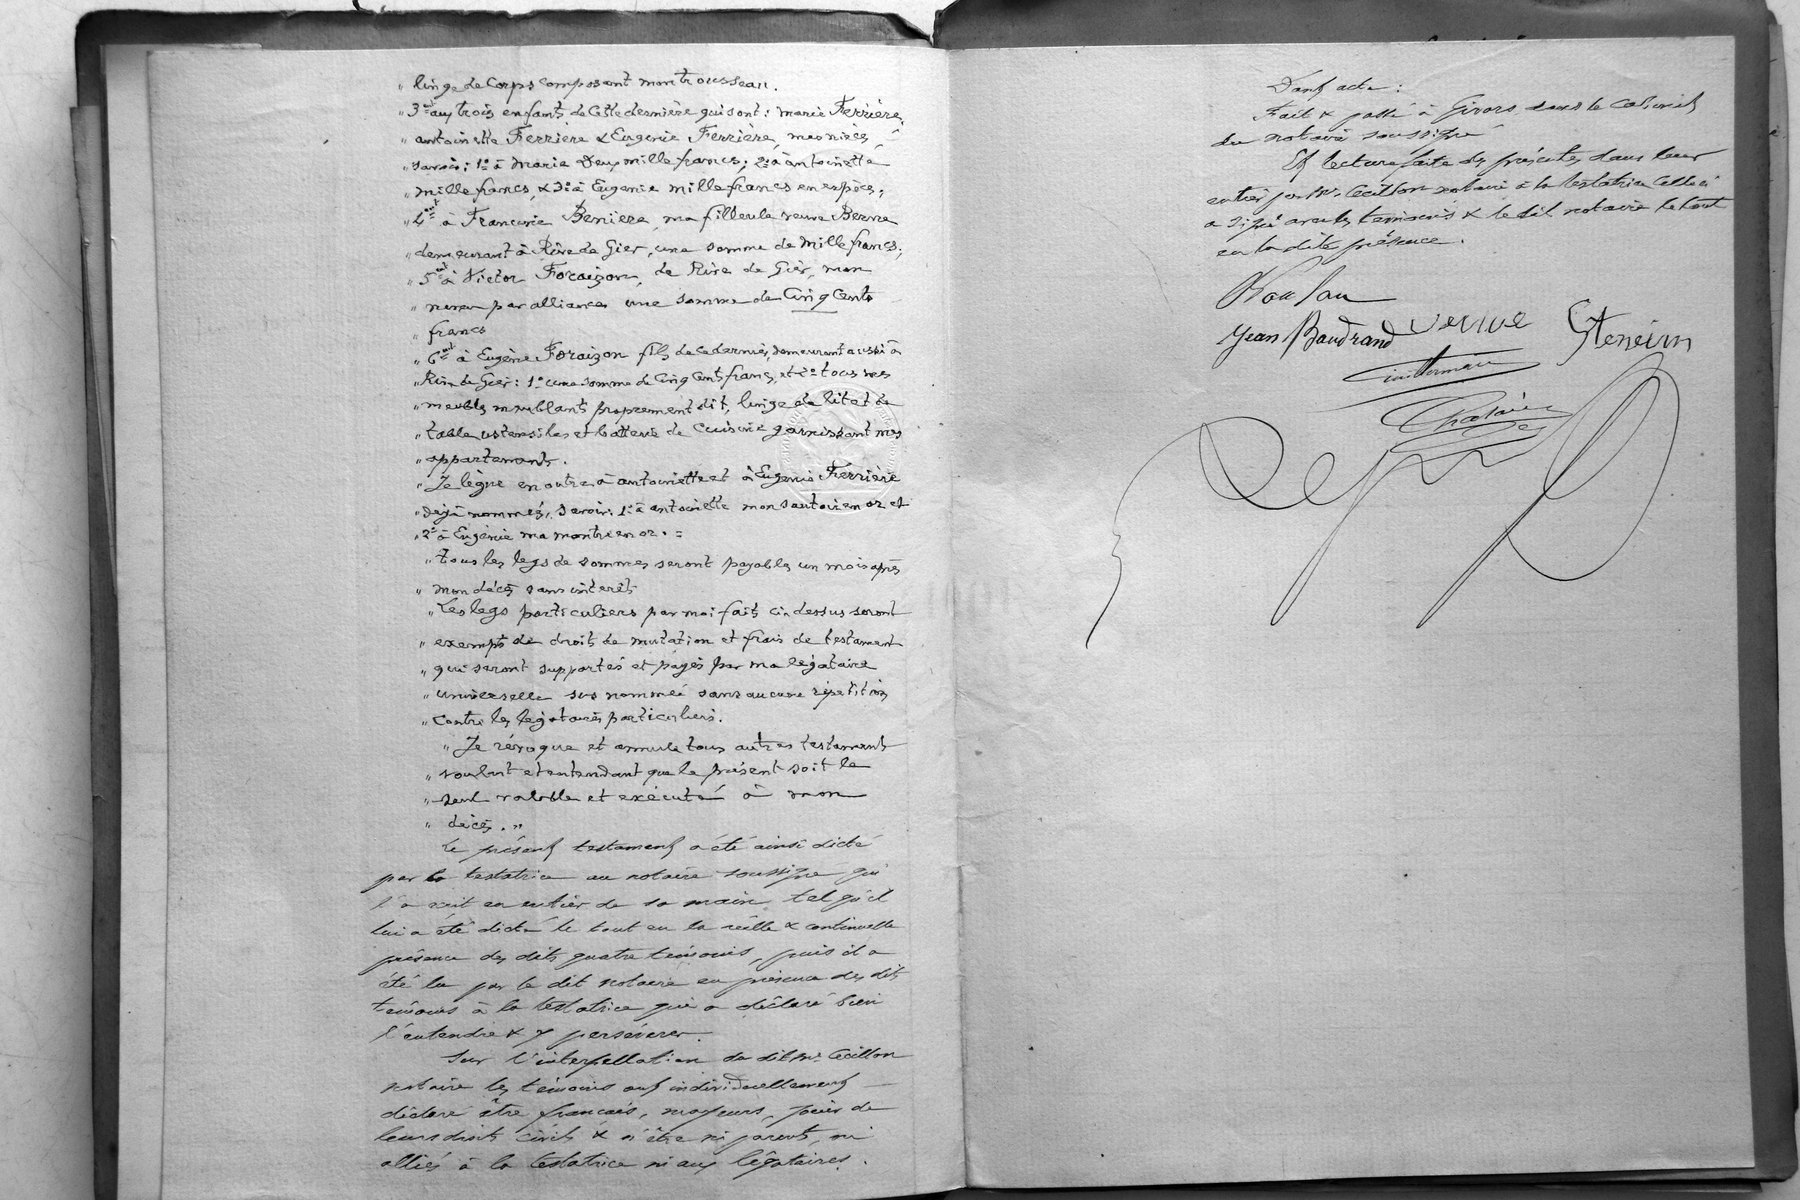 " linge de corps composant mon trousseau.
" 3ent aux trois enfants de cette dernière qui sont : marie Ferrière,
" antoinette Ferrière & Eugenie Ferrière, mes nièces,
" savoir : 1° à Marie Deux mille francs ; 2° à antoinette
" mille francs, & 3° à Eugenie mille francs en espèces ;
" 4ent à Francine Benière, ma filleule veuve Berne
" demeurant à Rive de Gier, une somme de mille francs ;
" 5ent à Victor Foraizon, de Rive de Gier, mon
" neveu par alliance une somme de Cinq Cents
" francs
" 6ent à Eugène Foraizon fils de ce dernier, demeurant aussi à
" Rive de Gier : 1° une somme de Cinq Cents francs, et 2° tous mes
" meubles meublants proprement dit, linge de lit et de
" table, ustensiles et batterie de Cuisine garnissant mes
" appartements.
" Je lègue en outre à antoinette et à Eugenie Ferrière
" déjà nommés, savoir : 1° à antoinette mon sautoir en or et
" 2° à Eugénie ma montre en or. =
" tous les legs de sommes seront payables un mois après
" mon décès sans intérêts
" Les legs particuliers par moi faits ci-dessus seront
" exempts de droits de mutation et frais de testament
" qui seront supportés et payés par ma légataire
" universelle sus nommée sans aucune répétition
" contre les légataires particuliers.
" Je révoque et annule tous autres testament
" voulant et entendant que le présent soit le
" seul valable et exécuté à mon
" décès. "
Le présent testament a été ainsi dicté
par la testatrice au notaire soussigné qui
l'a écrit en entier de sa main tel qu'il
lui a été dicté le tout en la réelle & continuelle
présence des dits quatre témoins, puis il a
été lu par le dit notaire en présence des dits
témoins à la testatrice qui a déclaré bien
l'entendre & y persévérer.
Sur l'interpellation du dit Me Cecillon
notaire les témoins ont individuellement
déclaré être français, majeurs, jouir de
leurs droits civils & n'être ni parents, ni
alliés à la testatrice ni aux légataires.
Dont acte :
Fait & passé à Givors dans le cabinet
du notaire soussigné
Et lecture faite des présentes dans leur
entier par Me Cecillon notaire à la testatrice celle ci
a signé avec les témoins & le dit notaire le tout
en la dite présence.
Jean Baudrand veuve
Guillermain